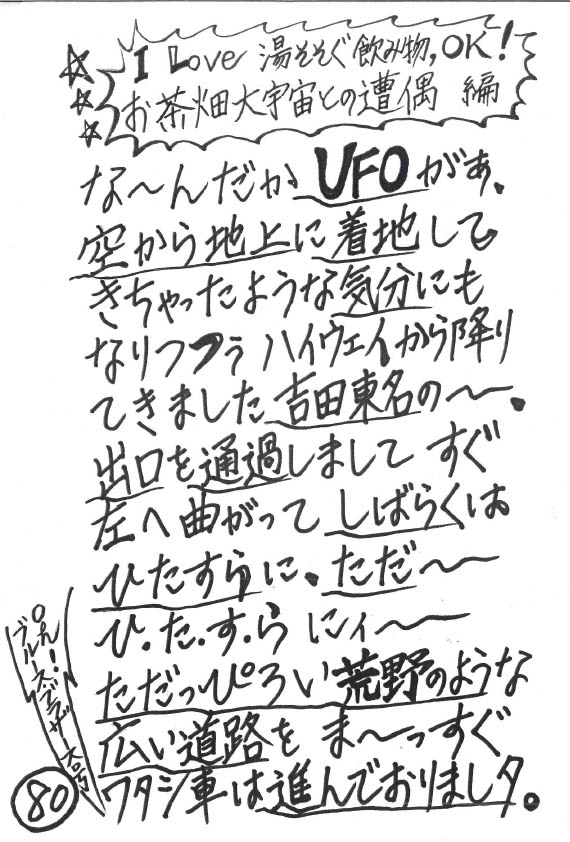 I Love 湯そそぐ飲み物,OK!
お茶畑大宇宙との遭遇 編
な〜んだか UFOがぁ、
空から地上に着地して
きちゃったような気分にも
なりつつぅ ハイウェイから降り
てきました吉田東名の〜。
出口を通過しまして すぐ
左へ曲がって しばらくは
ひたすらに、ただ〜
ひ・た・す・ら にィ〜
ただっぴろい荒野のような
広い道路を ま〜っすぐ
ワタシ車は進んでおりましタ。
80